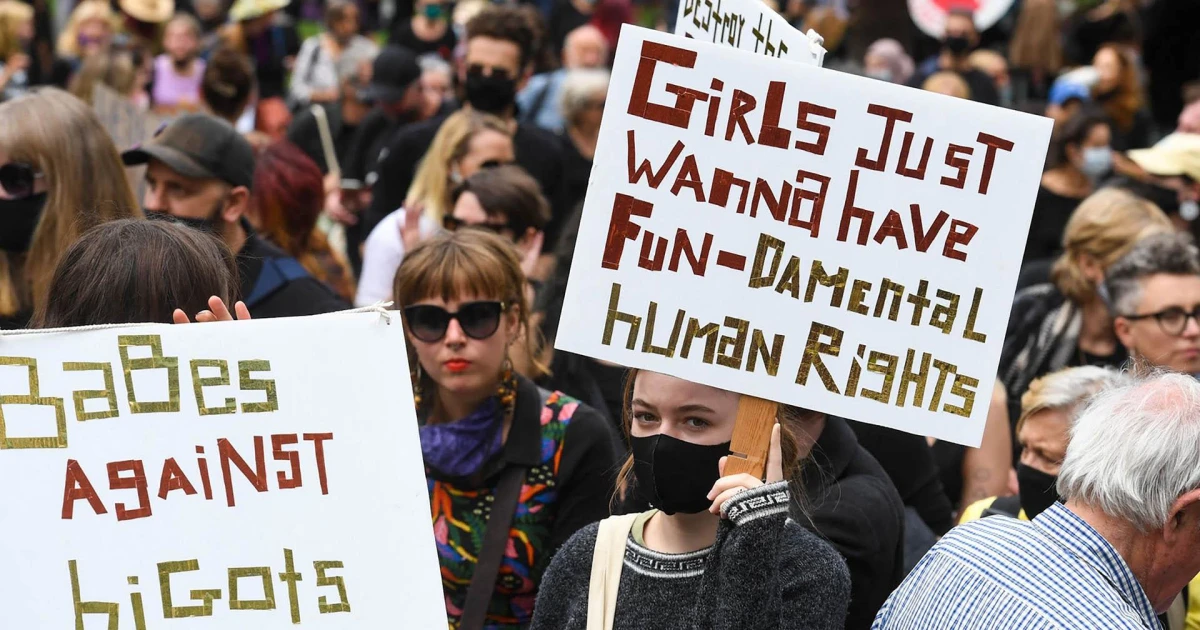 Destroy the
GiRLS JUST
WANNA HAVE
FUN-DAMental
HUMAN RigHTS
BaBes
AgAiNST
biGots